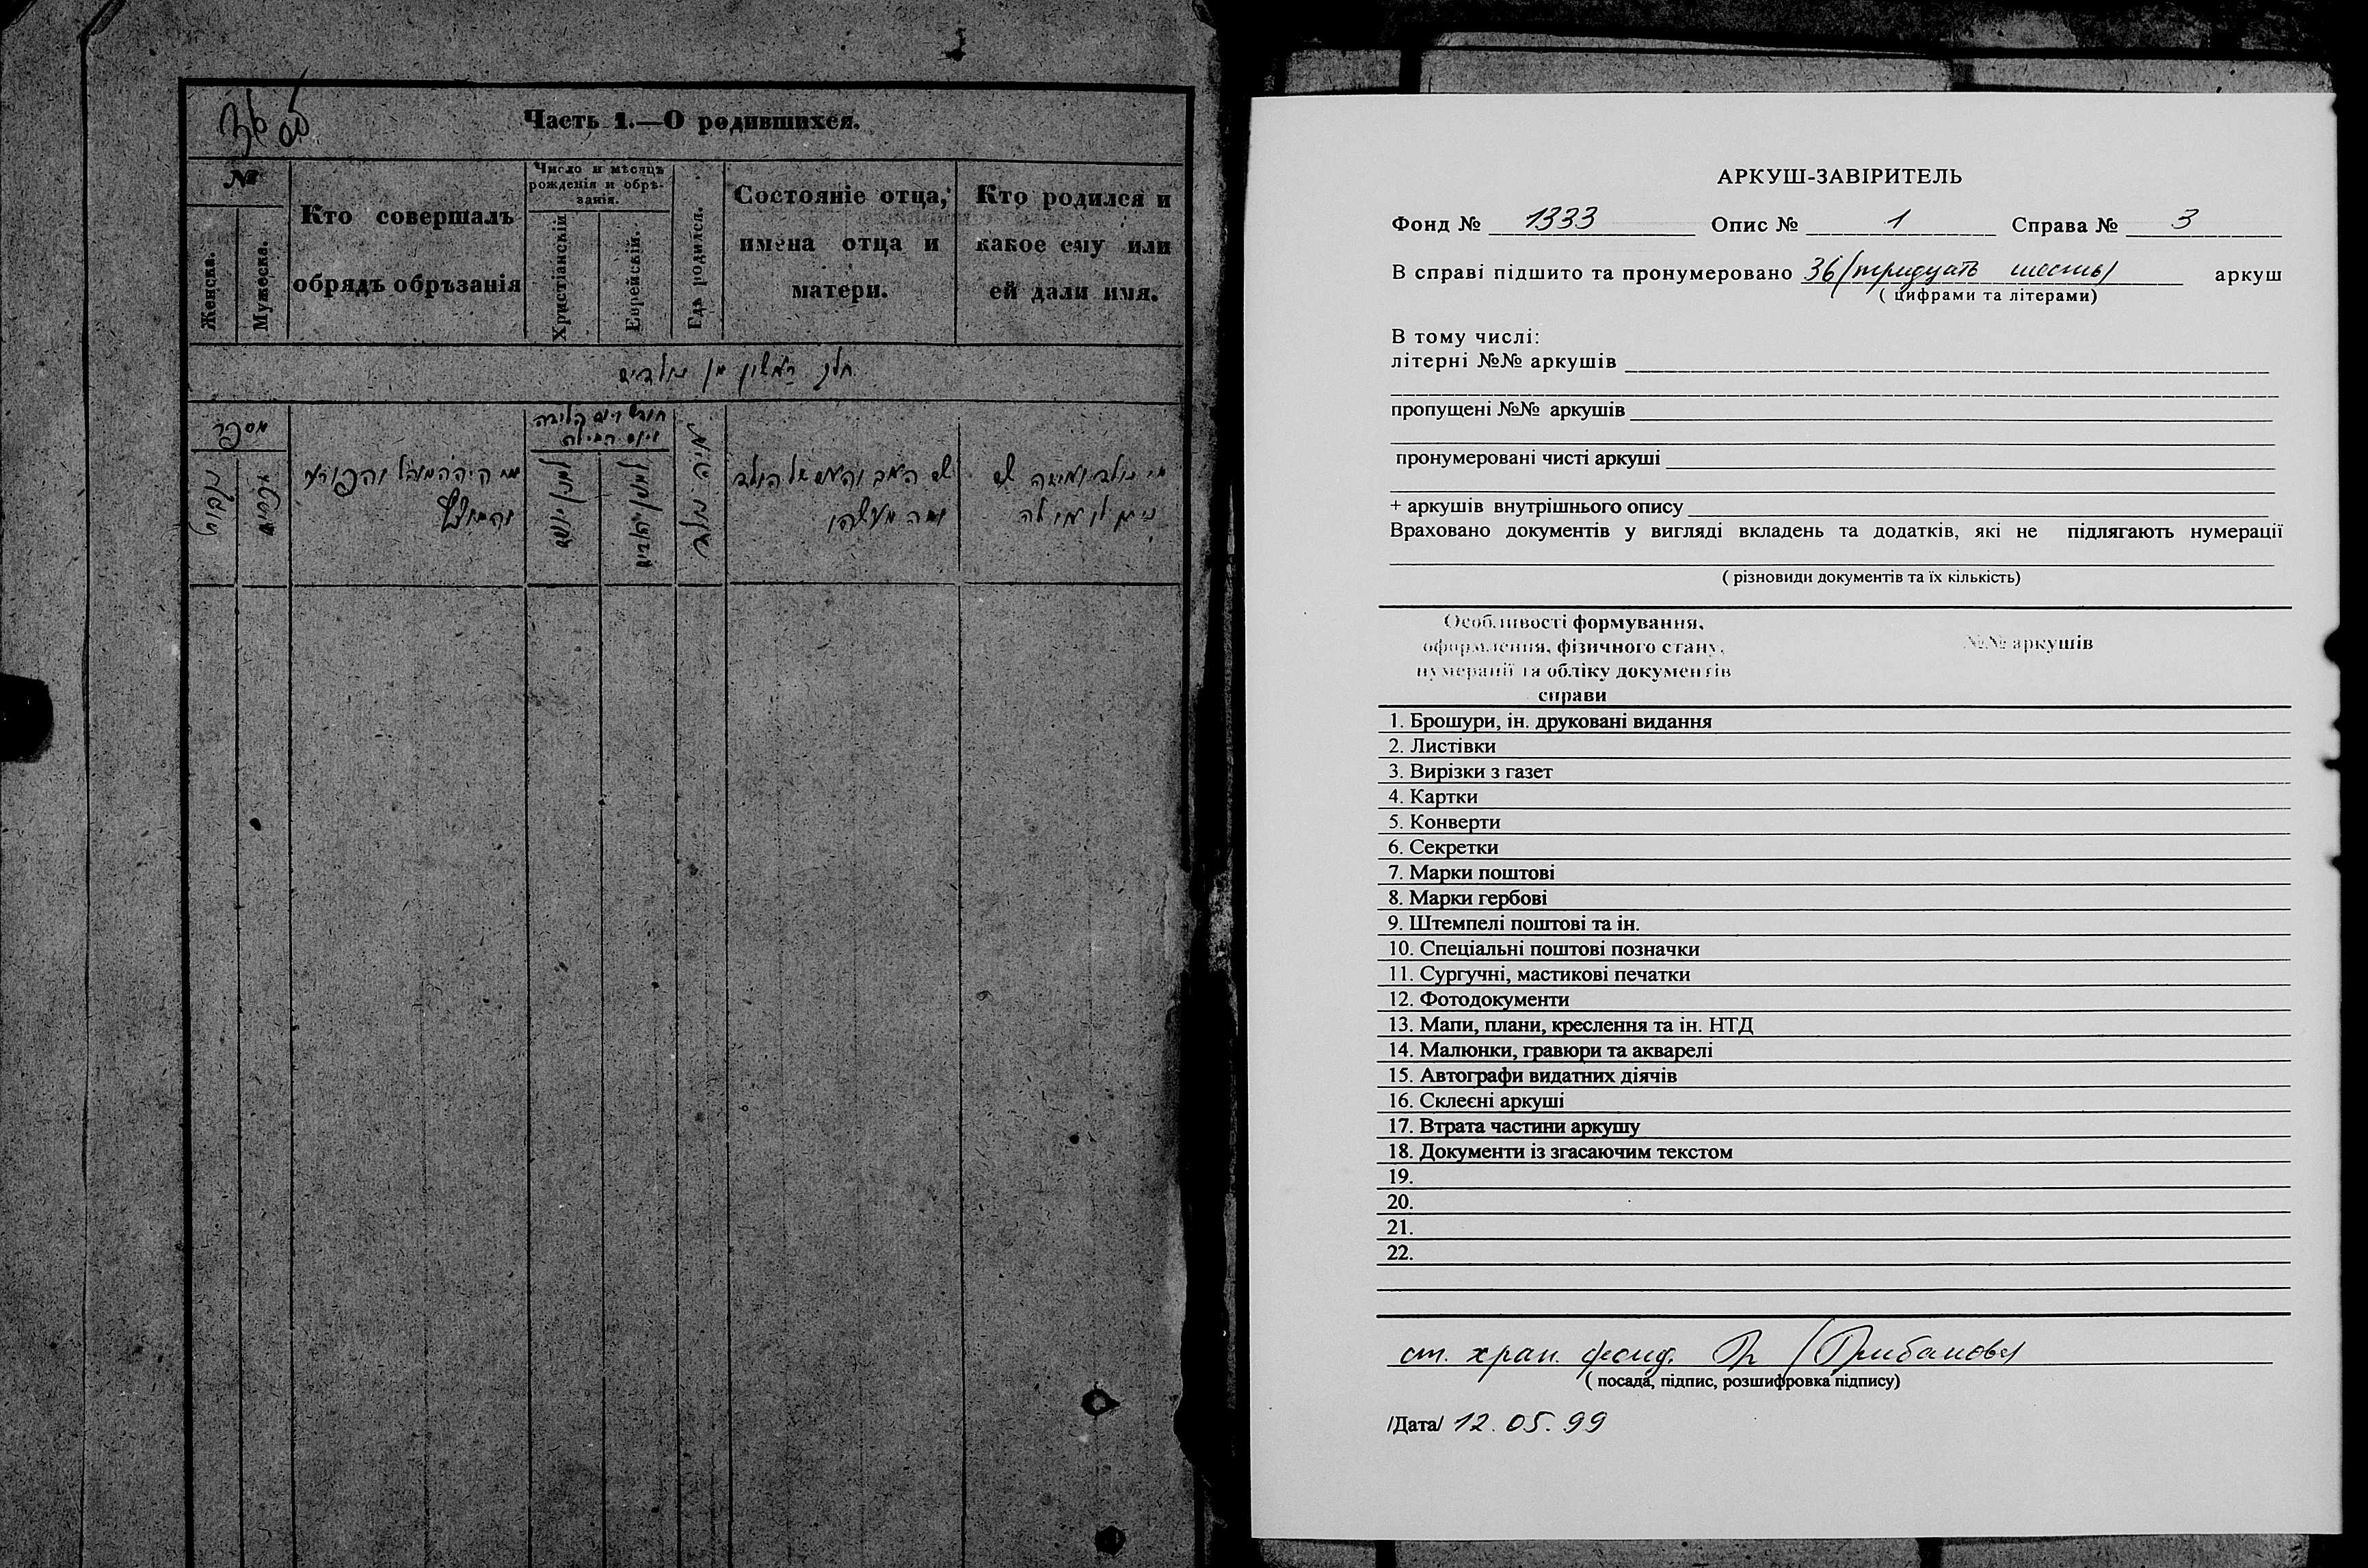 36 об
Часть 1.—О родившихся.
№
Женска.
Мужеска.
Кто совершалъ
обрядъ обрѣзанія
Число и мѣсяцъ
рожденія и обрѣ-
занія.
Христіанскій
Еврейскій.
Гдѣ родился.
Состояніе отца,
имена отца и
матери.
Кто родился и
какое ему или
ей дали имя.
חלק ראשון מן נולדים
מספר
נקבות
זכרים
מי היה המוהל והפורע
והמוצץ
חודש ויום הלידה
ויום המילה
איה נולד
שם האב והאם של הולד
ומה מעשהו
מי נולד ואיזה שם
ניתן לו או לה
АРКУШ-ЗАВІРИТЕЛЬ
Фонд № 1333 Опис № 1 Справа № 3
В справі підшито та пронумеровано 36 (тридцать шесть) аркуш
( цифрами та літерами)
В тому числі:
літерні №№ аркушів
пропущені №№ аркушів
пронумеровані чисті аркуші
+ аркушів внутрішнього опису
Враховано документів у вигляді вкладень та додатків, які не підлягають нумерації
( різновиди документів та їх кількість)
Особливості формування,
оформлення, фізичного стану,
нумерації та обліку документів
справи
№№ аркушів
1. Брошури, ін. друковані видання
2. Листівки
3. Вирізки з газет
4. Картки
5. Конверти
6. Секретки
7. Марки поштові
8. Марки гербові
9. Штемпелі поштові та ін.
10. Спеціальні поштові позначки
11. Сургучні, мастикові печатки
12. Фотодокументи
13. Мапи, плани, креслення та ін. НТД
14. Малюнки, гравюри та акварелі
15. Автографи видатних діячів
16. Склеєні аркуші
17. Втрата частини аркушу
18. Документи із згасаючим текстом
19.
20.
21.
22.
ст. хран. фонд. Гр (Грибанова)
( посада, підпис, розшифровка підпису)
/Дата/ 12.05.99